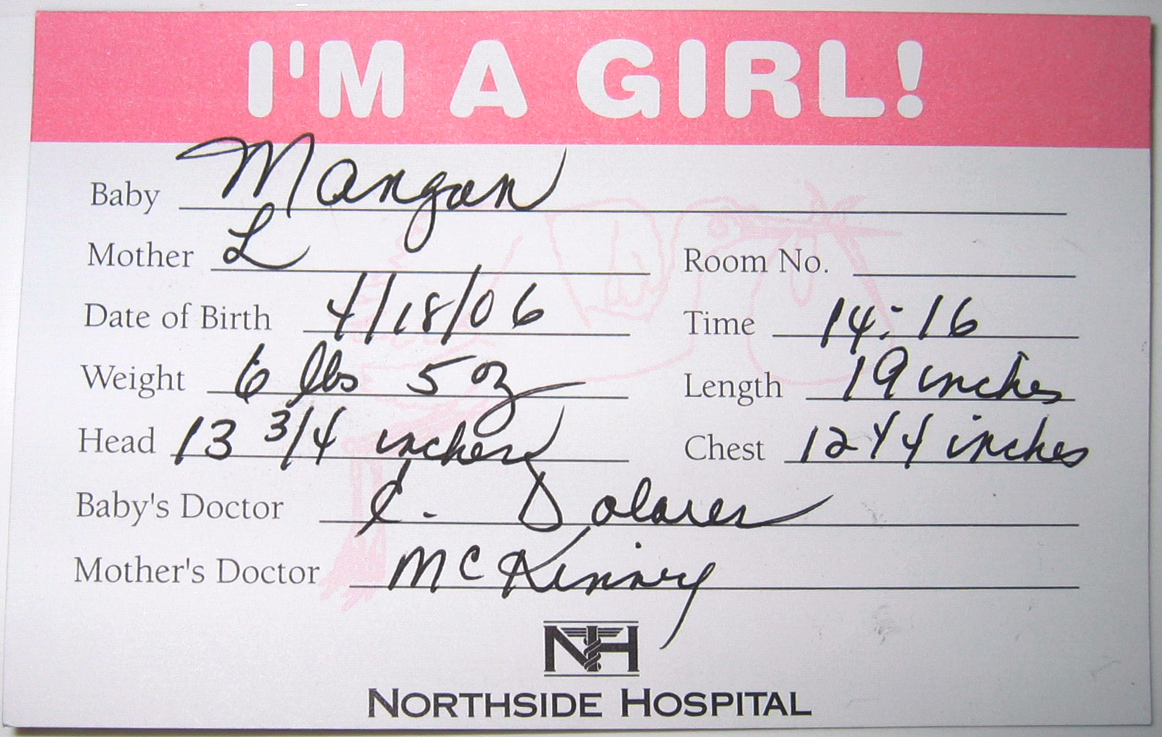 I'M A GIRL!
Baby Mangan
Mother L Room No.
Date of Birth 4/18/06 Time 14:16
Weight 6 lbs 5 oz Length 19 inches
Head 13 3/4 inches Chest 12 1/4 inches
Baby's Doctor
Mother's Doctor McKinney
NH
NORTHSIDE HOSPITAL